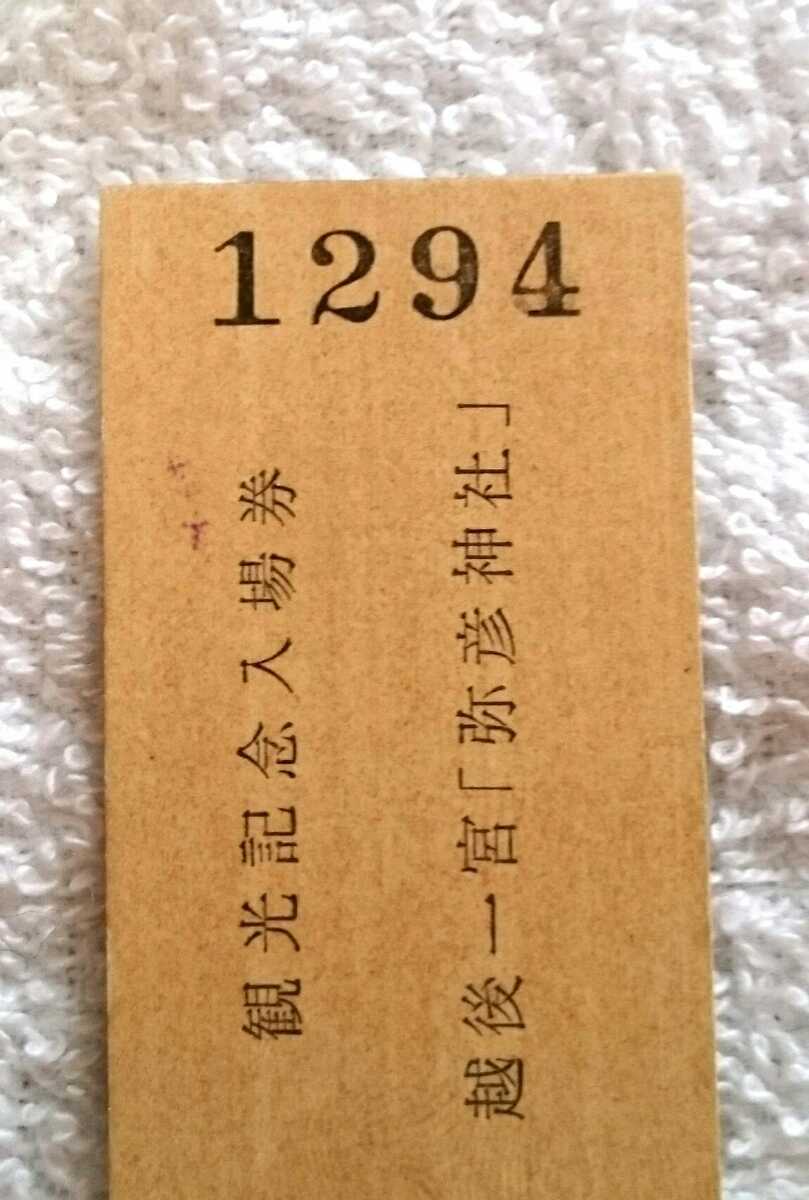 1294
観光記念入場券
越後一宮「弥彦神社」